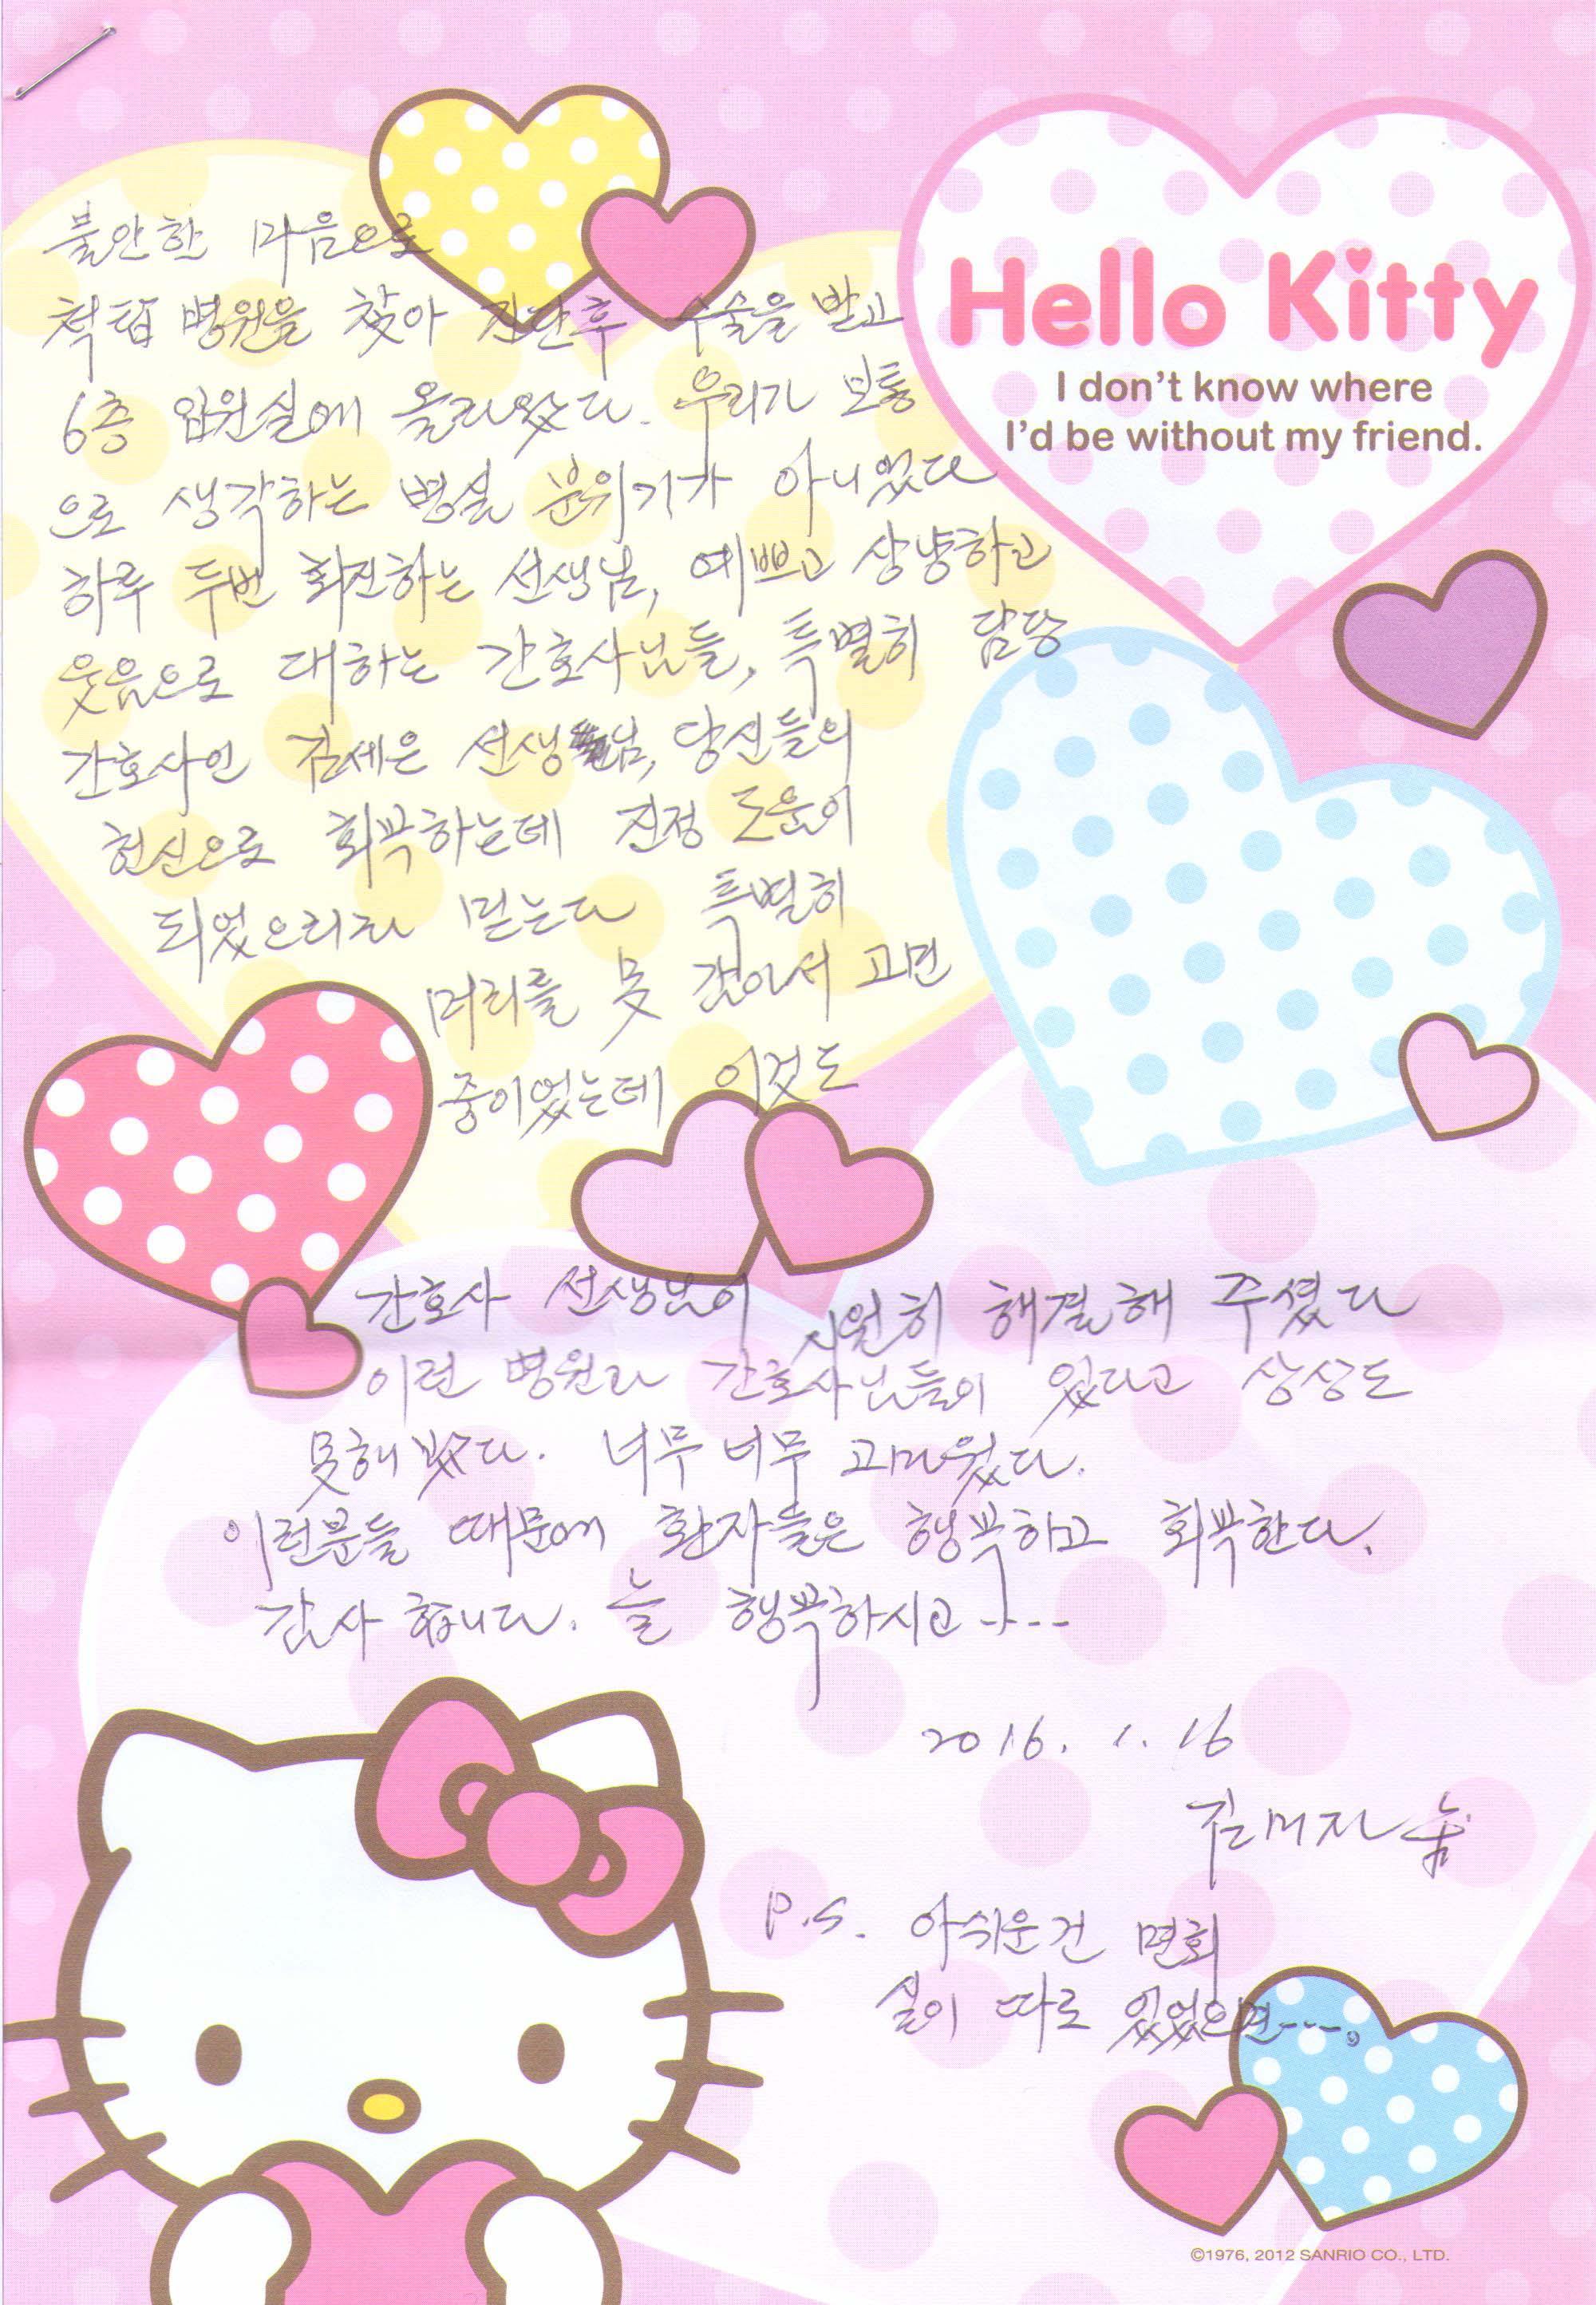 불안한 마음으로
척탑 병원을 찾아 진단후 수술을 받고
6층 입원실에 올라왔다. 우리가 보통
으로 생각하는 병실 분위기가 아니었다
하루 두번 회진하는 선생님, 예쁘고 상냥하고
웃음으로 대하는 간호사님들, 특별히 담당
간호사인 김세은 선생님, 당신들의
헌신으로 회복하는데 진정 도움이
되었으리라 믿는다 특별히
머리를 못 감아서 고민
중이었는데 이것도
간호사 선생님이 시원히 해결해 주셨다
이런 병원과 간호사님들이 있다고 상상도
못해 봤다. 너무 너무 고마웠다.
이런분들 때문에 환자들은 행복하고 회복한다.
감사 합니다. 늘 행복하시고----
2016. 1. 16
김미자
P.S. 아쉬운건 면회
실이 따로 있었으면----.
Hello Kitty
I don't know where
I'd be without my friend.
©1976, 2012 SANRIO CO., LTD.